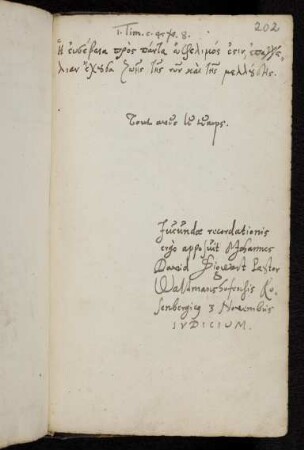 202
1. Tim. c. 4. ℣. 8.
Ἡ εὐσέβεια πρὸς πάντα ὠφέλιμός ἐστιν, ἐπαγγε-
λίαν ἔχουσα ζωῆς τῆς νῦν καὶ τῆς μελλούσης.
Tout avec le temps.
Jucundæ recordationis
ergò apposuit Johannes
David Pastor
Waldmanshofensis Ro-
senbergicus 3 Novembris
IVDICIVM.